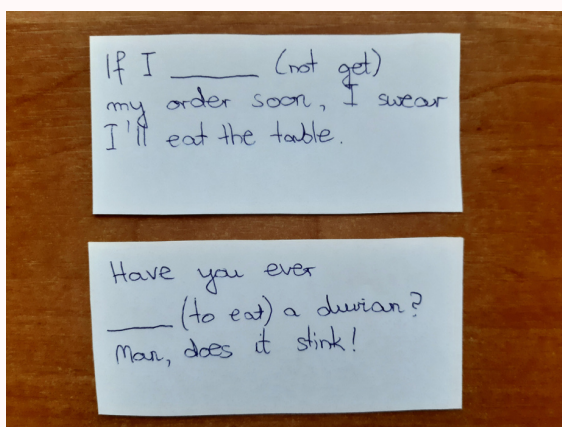 If I ______ (not get)
my order soon, I swear
I'll eat the table.
Have you ever
_____ (to eat) a durian?
Man, does it stink!